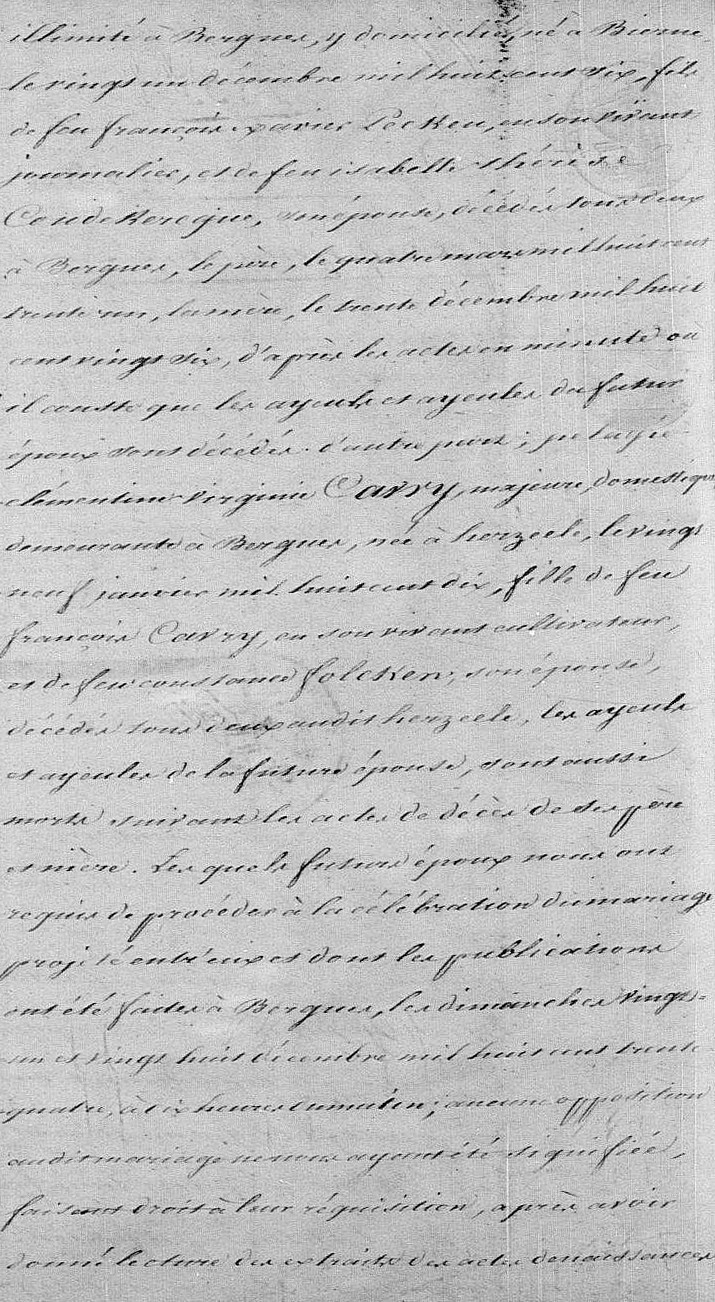 illimité à Bergues, y domicilié, né à Bierne
le vingt un décembre mil huit cent six, fils
de feu françois xavier Decken, en son vivant
journalier, et de feu isabelle thérèse
son épouse, décédés tous deux
à Bergues, le père, le quatre mars mil huit cent
trente un, la mère, le trente décembre mil huit
cent vingt six, d'après les actes en minute où
il conste que les ayeuls et ayeules du futur
époux sont décédés. d'autre part; pelagie
clémentine virginie Carry, majeure, domestique
demeurante à Bergues, née à herzeele, le vingt
neuf janvier mil huit cent dix, fille de feu
françois Carry, en son vivant cultivateur,
et de feu constance folcken, son épouse,
décédés tous deux audit herzeele, les ayeuls
et ayeules de la future épouse, sont aussi
morts suivant les actes de décès de ses père
et mère. Les quels futurs époux nous ont
requis de procéder à la célébration du mariage
projeté entr'eux et dont les publications
ont été faites à Bergues, les dimanches vingt-
un et vingt huit décembre mil huit cent trente
quatre, à dix heures du matin; aucune opposition
audit mariage ne nous ayant été signifiée,
faisant droit à leur réquisition, après avoir
donné lecture des extraits des actes de naissances